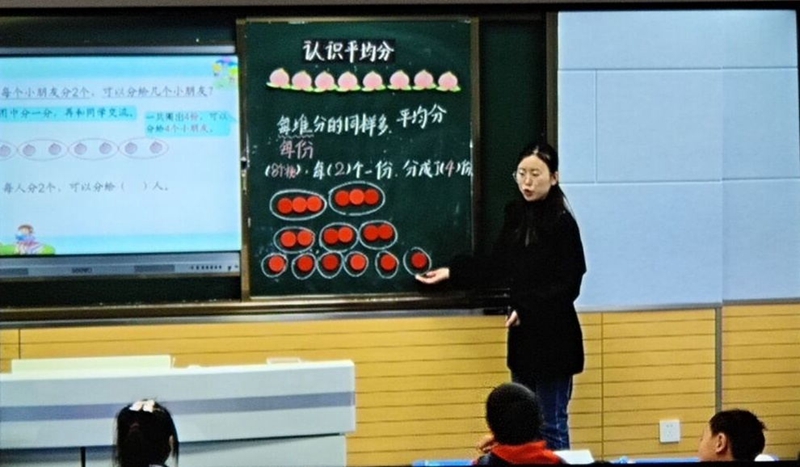 每个小朋友分2个，可以分给几个小朋友？
图中分一分，再和同学交流。
一共圈出4份，可以
分给4个小朋友。
每人分2个，可以分给（ ）人。
认识平均分
每堆分的同样多，平均分
每份
(8个桃)，每(2)个一份，分成了(4)份